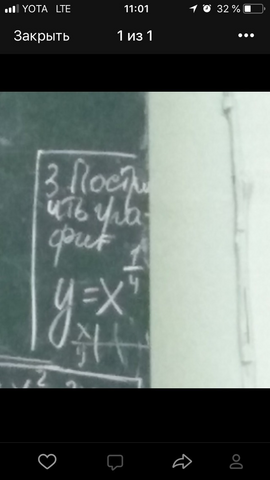 YOTA LTE 11:01 32 %
Закрыть 1 из 1
3 Постро
ить гра-
фик
y = x^{1/4}
x
y